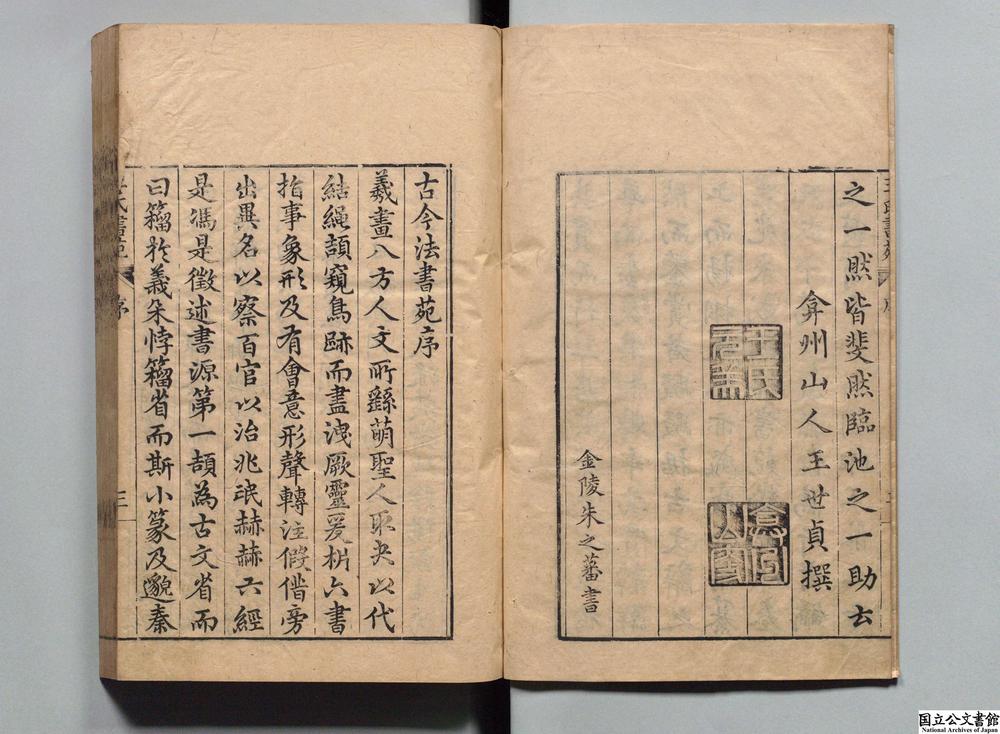 之一然皆斐然臨池之一助云
弇州山人王世貞撰
王氏元美
弇州山人
金陵朱之蕃書
古今法書苑序
羲畫八方人文所繇萌聖人取夬以代
結繩頡窺鳥跡而盡洩厥靈爰析六書
指事象形及有會意形聲轉注假借旁
出異名以察百官以治兆氓赫赫六經
是馮是徵述書源第一頡為古文省而
曰籀於義朵悖籀省而斯小篆及邈秦
王氏書苑
序
三
国立公文書館
National Archives of Japan